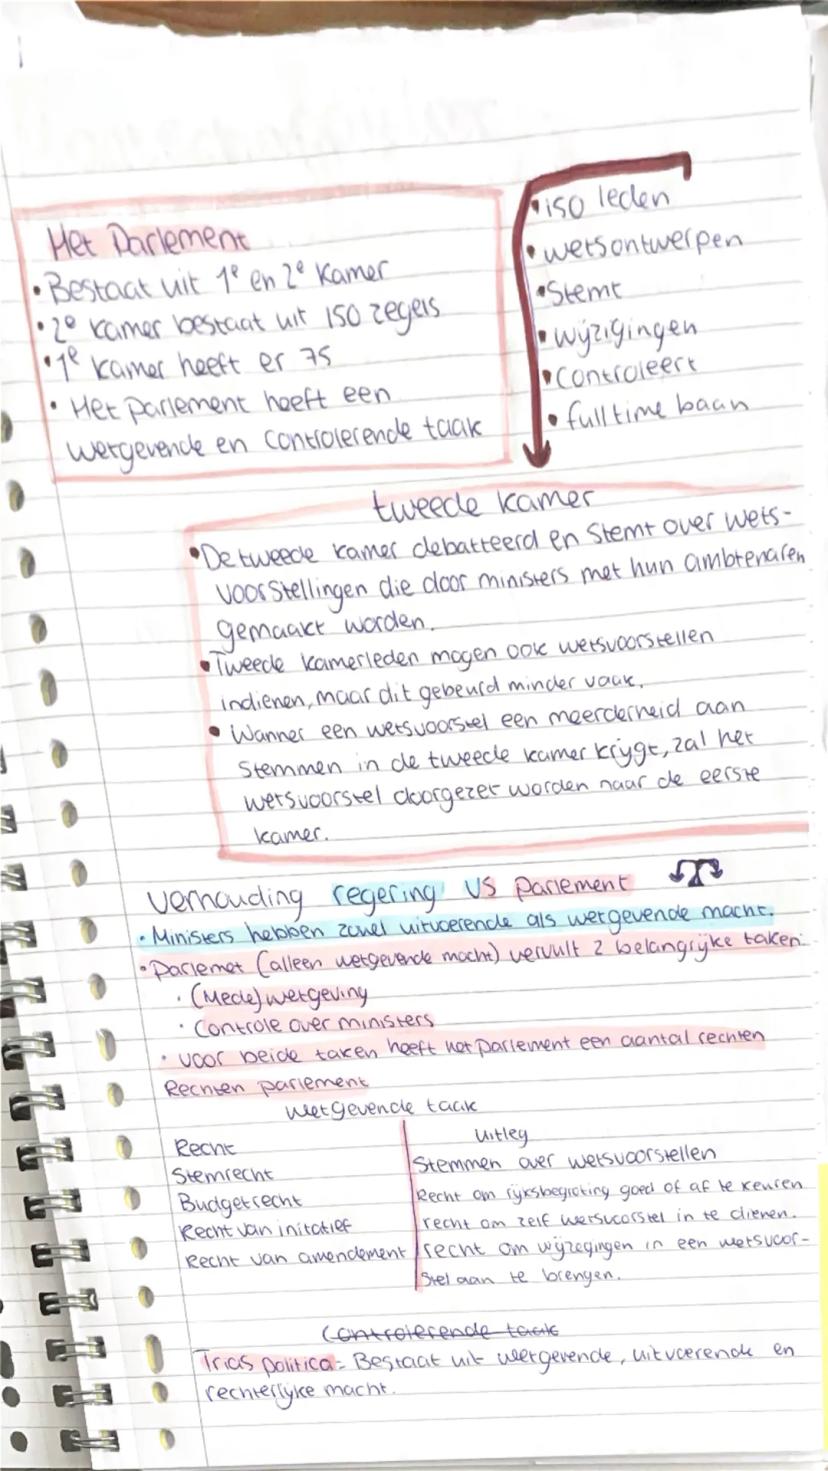 Het Parlement
• Bestaat uit 1e en 2e Kamer
• 2e kamer bestaat uit 150 zegels
• 1e kamer heeft er 75
• Het parlement heeft een
wetgevende en controlerende taak
• 150 leden
• wetsontwerpen
• Stemt
• wijzigingen
• controleert
• fulltime baan
tweede kamer
• De tweede kamer debatteerd en stemt over wets-
voorstellingen die door ministers met hun ambtenaren
gemaakt worden.
• Tweede kamerleden mogen ook wetsvoorstellen
indienen, maar dit gebeurd minder vaak.
• Wanner een wetsvoorstel een meerderheid aan
stemmen in de tweede kamer krijgt, zal het
wetsvoorstel doorgezet worden naar de eerste
kamer.
verhouding regering VS parlement
• Ministers hebben zowel uitvoerende als wetgevende macht.
• Parlemet (alleen wetgevende macht) vervult 2 belangrijke taken:
• (Mede) wetgeving
• Controle over ministers
• voor beide taken heeft het parlement een aantal rechten
Rechten parlement
wetgevende taak
Recht
Uitleg
Stemrecht
Stemmen over wetsvoorstellen
Budgetrecht
Recht om rijksbegroting goed of af te keuren
Recht van initatief
recht om zelf wetsvoorstel in te dienen.
Recht van amendement
recht om wijzegingen in een wetsvoor-
stel aan te brengen.
Controlerende taak
Trias politica = Bestaat uit wetgevende, uitvoerende en
rechterlijke macht.